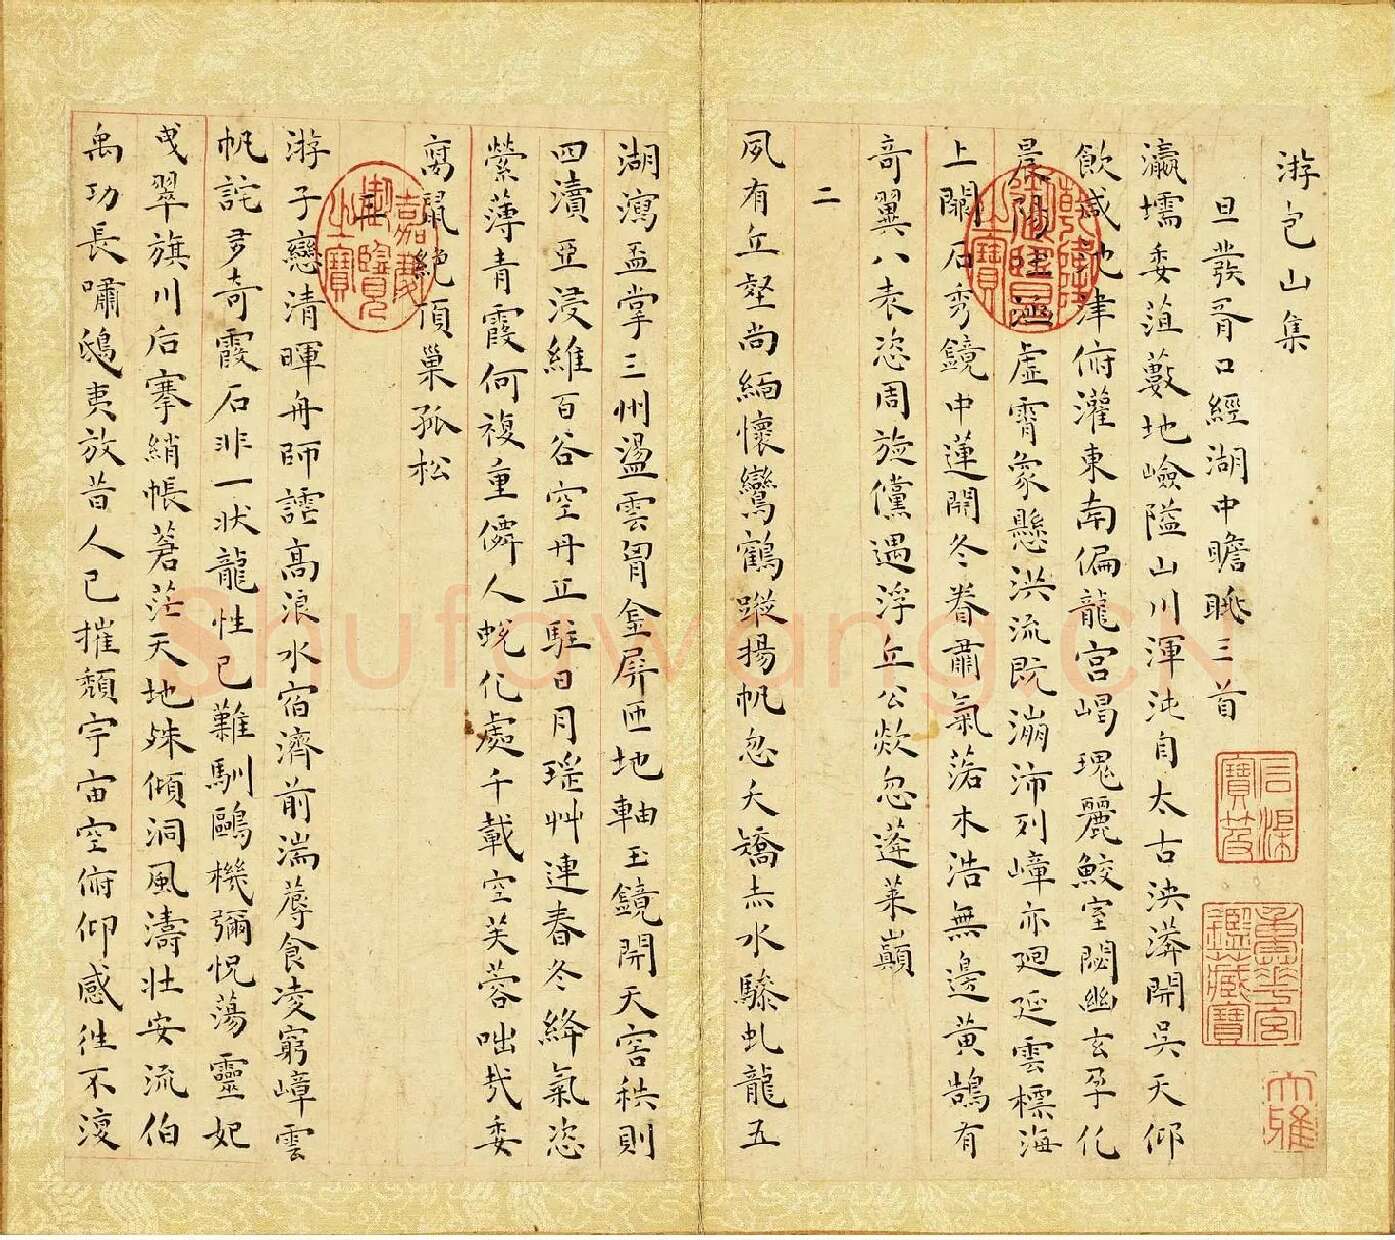 游包山集
旦發胥口經湖中瞻眺三首
瀛壖委菹藪地嶮隘山川渾沌自太古泱漭開吳天仰
飲咸池津俯灌東南偏龍宮嵑瑰麗鮫室閟幽玄孕化
晨陽虛霄象懸洪流既漰沛列嶂亦迴延雲標海
上關石秀鏡中蓮開冬眷肅氣落木浩無邊黃鵠有
奇翼八表恣周旋儻遇浮丘公欻忽蓬萊巔
二
夙有丘壑尚緬懷鸞鶴蹤揚帆忽夭矯赤水驂虬龍五
湖瀉盃掌三州盪雲胷金屏匝地軸玉鏡開天容秩則
四瀆亞浸維百谷空丹丘駐日月瑤艸連春冬絳氣恣
縈薄青霞何複重僊人蛻化處千載空芙蓉咄哉委
窮鼠絕頂巢孤松
三
游子戀清暉舟師謔高浪水宿濟前湍蓐食凌窮嶂雲
帆詫多奇霞石非一狀龍性已難馴鷗機彌怳蕩靈妃
曵翠旗川后搴綃帳蒼茫天地殊傾洞風濤壯安流伯
禹功長嘯鴟夷放昔人已摧頹宇宙空俯仰感往不復
乾隆御覽之寶
嘉慶御覽之寶
石渠寶笈
重華宮鑑藏寶
大雅
shufawang.cn